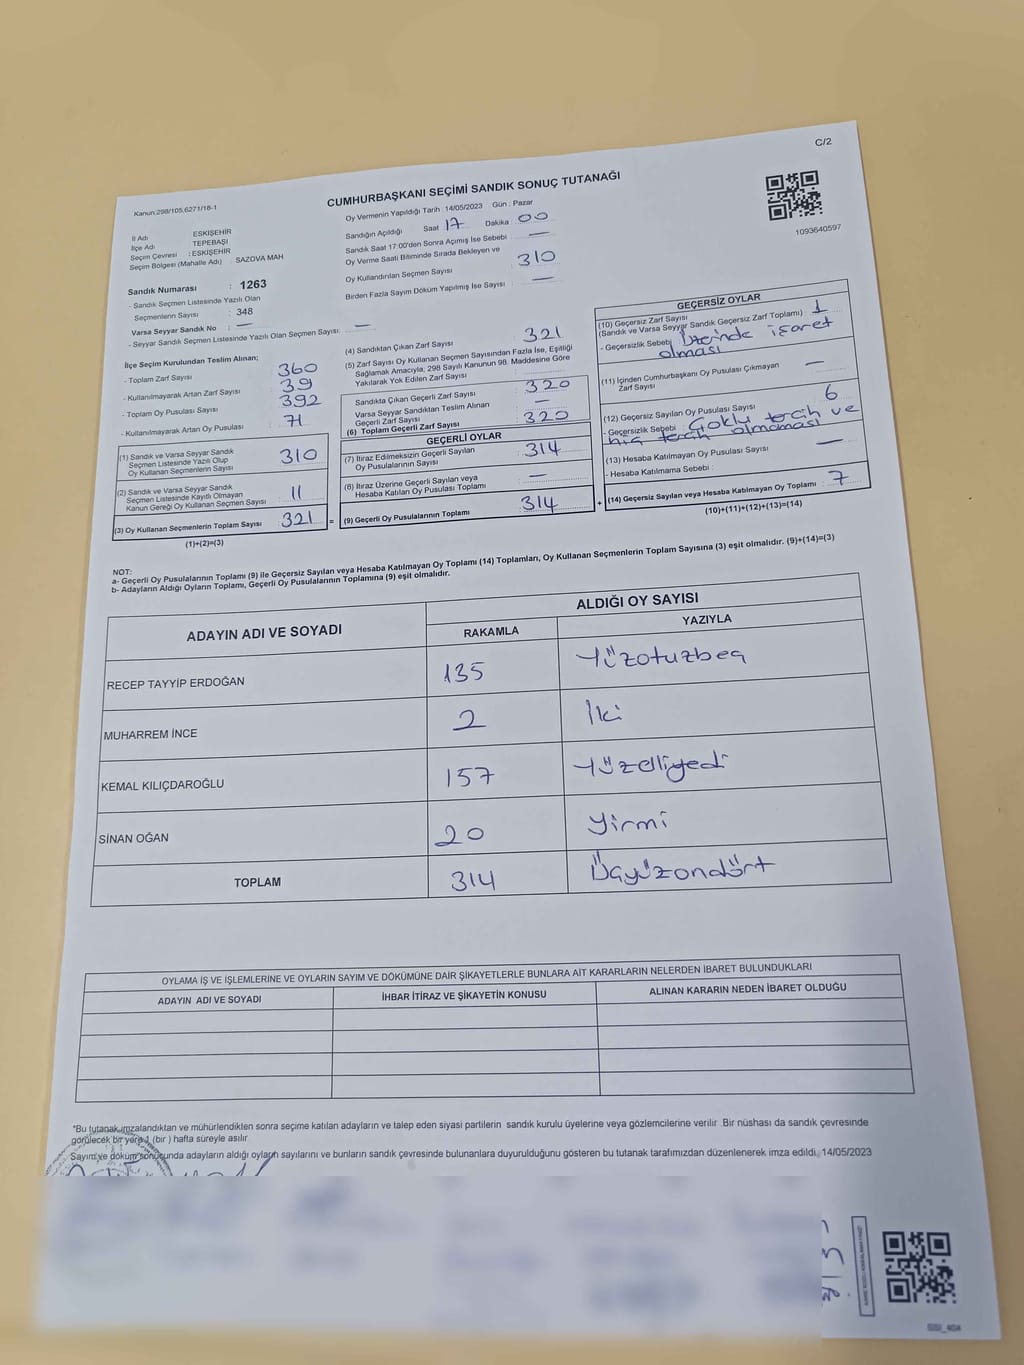 C/2
Kanun:298/105,6271/18-1
CUMHURBAŞKANI SEÇİMİ SANDIK SONUÇ TUTANAĞI
1093640597
İl Adı ESKİŞEHİR
İlçe Adı TEPEBAŞI
Seçim Çevresi : ESKİŞEHİR
Seçim Bölgesi (Mahalle Adı) SAZOVA MAH
Sandık Numarası : 1263
- Sandık Seçmen Listesinde Yazılı Olan
Seçmenlerin Sayısı : 348
Varsa Seyyar Sandık No : —
- Seyyar Sandık Seçmen Listesinde Yazılı Olan Seçmen Sayısı: —
Oy Vermenin Yapıldığı Tarih : 14/05/2023 Gün : Pazar
Sandığın Açıldığı Saat 17 Dakika : 00
Sandık Saat 17:00'den Sonra Açımış İse Sebebi : —
Oy Verme Saati Bitiminde Sırada Bekleyen ve
Oy Kullandırılan Seçmen Sayısı : 310
Birden Fazla Sayım Döküm Yapılmış İse Sayısı : —
İlçe Seçim Kurulundan Teslim Alınan;
- Toplam Zarf Sayısı : 360
- Kullanılmayarak Artan Zarf Sayısı : 39
- Toplam Oy Pusulası Sayısı : 392
- Kullanılmayarak Artan Oy Pusulası : 71
(1) Sandık ve Varsa Seyyar Sandık
Seçmen Listesinde Yazılı Olup
Oy Kullanan Seçmenlerin Sayısı : 310
(2) Sandık ve Varsa Seyyar Sandık
Seçmen Listesinde Kayıtlı Olmayan
Kanun Gereği Oy Kullanan Seçmen Sayısı : 11
(3) Oy Kullanan Seçmenlerin Toplam Sayısı : 321 =
(1)+(2)=(3)
(4) Sandıktan Çıkan Zarf Sayısı : 321
(5) Zarf Sayısı Oy Kullanan Seçmen Sayısından Fazla İse, Eşitliği
Sağlamak Amacıyla, 298 Sayılı Kanunun 98. Maddesine Göre
Yakılarak Yok Edilen Zarf Sayısı
Sandıkta Çıkan Geçerli Zarf Sayısı : 320
Varsa Seyyar Sandıktan Teslim Alınan
Geçerli Zarf Sayısı : —
(6) Toplam Geçerli Zarf Sayısı : 320
GEÇERLİ OYLAR
(7) İtiraz Edilmeksizin Geçerli Sayılan
Oy Pusulalarının Sayısı : 314
(8) İtiraz Üzerine Geçerli Sayılan veya
Hesaba Katılan Oy Pusulası Toplamı : —
(9) Geçerli Oy Pusulalarının Toplamı : 314 +
GEÇERSİZ OYLAR
(10) Geçersiz Zarf Sayısı
(Sandık ve Varsa Seyyar Sandık Geçersiz Zarf Toplamı) : 1
- Geçersizlik Sebebi : Üzerinde işaret
olması
(11) İçinden Cumhurbaşkanı Oy Pusulası Çıkmayan
Zarf Sayısı : —
(12) Geçersiz Sayılan Oy Pusulası Sayısı : 6
- Geçersizlik Sebebi : Çoklu tercih ve
hiç tercih olmaması
(13) Hesaba Katılmayan Oy Pusulası Sayısı : —
- Hesaba Katılmama Sebebi :
(14) Geçersiz Sayılan veya Hesaba Katılmayan Oy Toplamı : 7
(10)+(11)+(12)+(13)=(14)
NOT:
a- Geçerli Oy Pusulalarının Toplamı (9) ile Geçersiz Sayılan veya Hesaba Katılmayan Oy Toplamı (14) Toplamları, Oy Kullanan Seçmenlerin Toplam Sayısına (3) eşit olmalıdır. (9)+(14)=(3)
b- Adayların Aldığı Oyların Toplamı, Geçerli Oy Pusulalarının Toplamına (9) eşit olmalıdır.
ADAYIN ADI VE SOYADI ALDIĞI OY SAYISI
RAKAMLA YAZIYLA
RECEP TAYYİP ERDOĞAN 135 Yüzotuzbeş
MUHARREM İNCE 2 İki
KEMAL KILIÇDAROĞLU 157 Yüzelliyedi
SİNAN OĞAN 20 Yirmi
TOPLAM 314 Üçyüzondört
OYLAMA İŞ VE İŞLEMLERİNE VE OYLARIN SAYIM VE DÖKÜMÜNE DAİR ŞİKAYETLERLE BUNLARA AİT KARARLARIN NELERDEN İBARET BULUNDUKLARI
ADAYIN ADI VE SOYADI İHBAR İTİRAZ VE ŞİKAYETİN KONUSU ALINAN KARARIN NEDEN İBARET OLDUĞU
*Bu tutanak imzalandıktan ve mühürlendikten sonra seçime katılan adayların ve talep eden siyasi partilerin sandık kurulu üyelerine veya gözlemcilerine verilir .Bir nüshası da sandık çevresinde
görülecek bir yere 1 (bir ) hafta süreyle asılır.
Sayım ve döküm sonucunda adayların aldığı oyların sayılarını ve bunların sandık çevresinde bulunanlara duyurulduğunu gösteren bu tutanak tarafımızdan düzenlenerek imza edildi. 14/05/2023